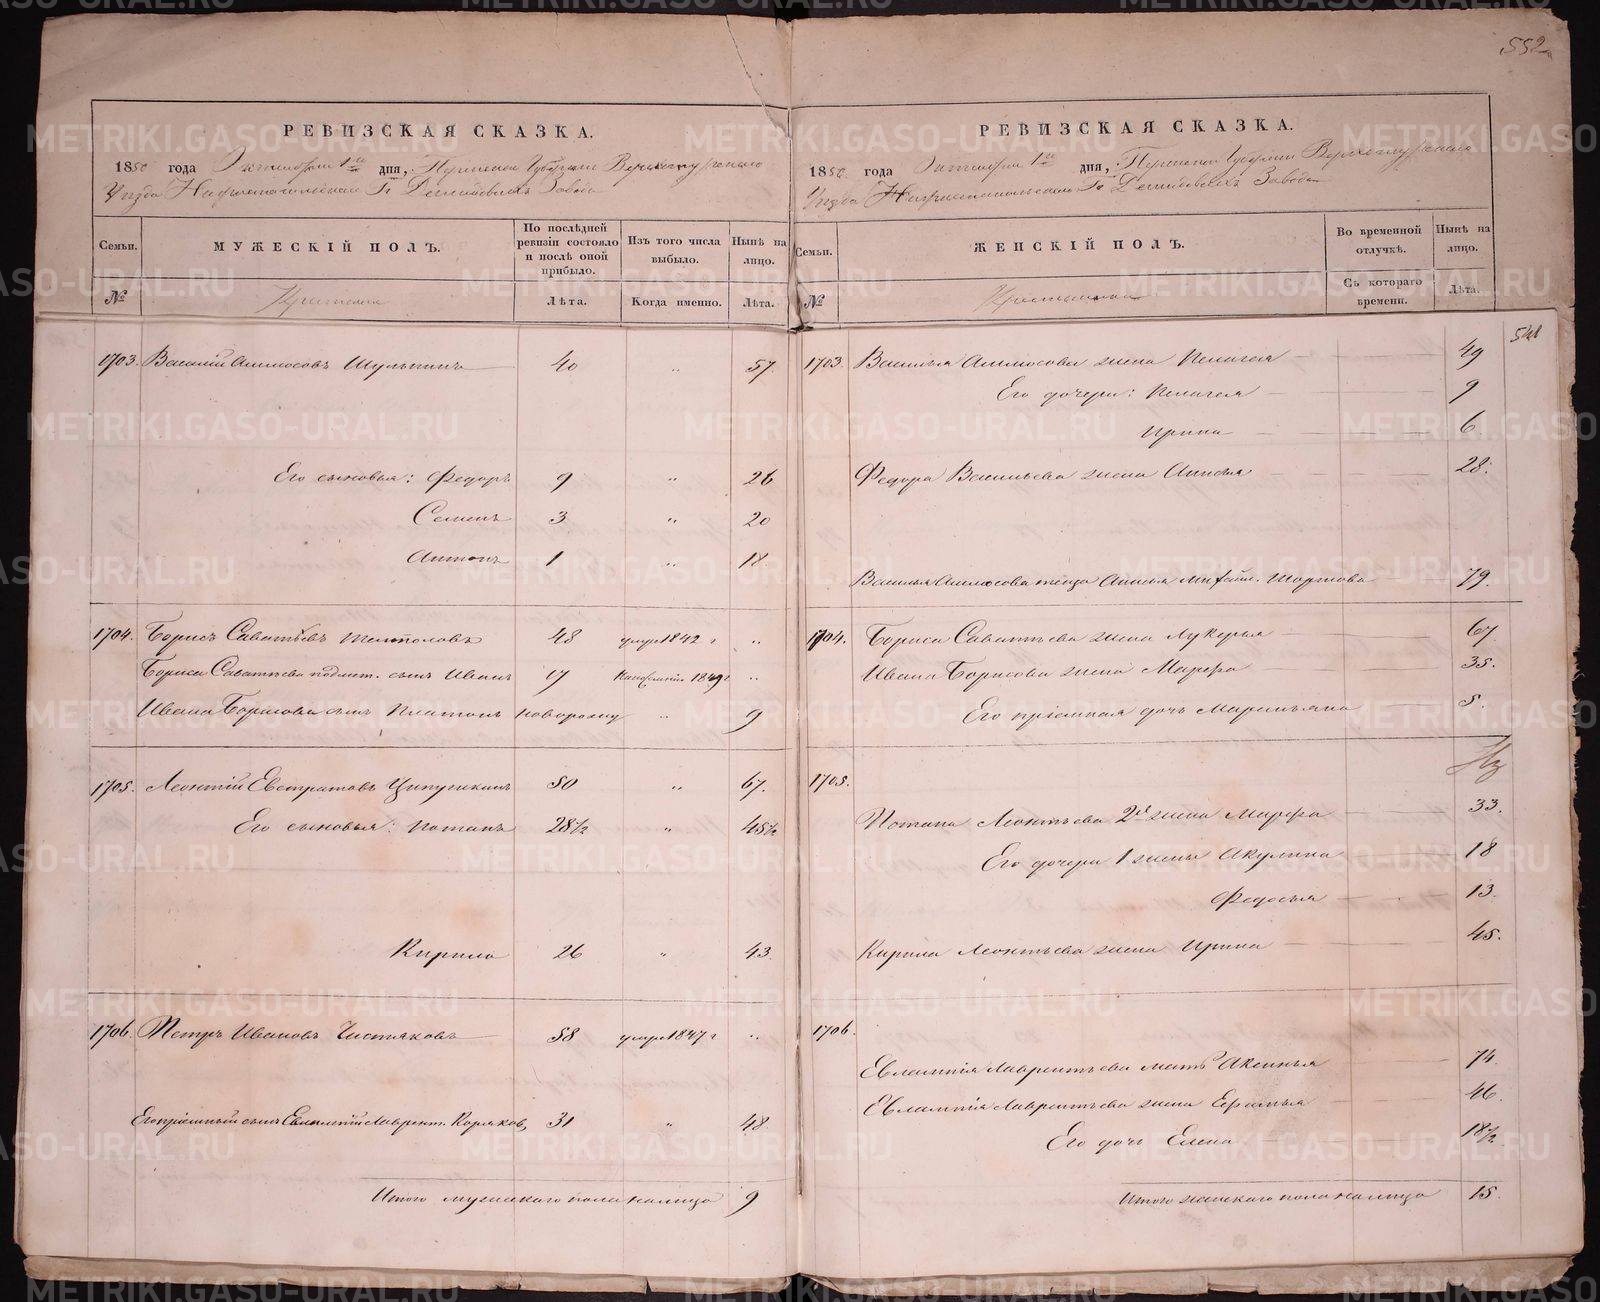 552
РЕВИЗСКАЯ СКАЗКА.
1850 года Октября 1го дня, Пермской Губернии Верхотурскаго
Уѣзда Г. Демидовыхъ Завода
Семьи.
МУЖЕСКІЙ ПОЛЪ.
По послѣдней ревизіи состояло и послѣ оной прибыло.
Изъ того числа выбыло.
Нынѣ на лицо.
№
Крестьяне
Лѣта.
Когда именно.
Лѣта.
1703. Василій Аммосовъ 40 „ 57.
Его сыновья: Федоръ 9 „ 26
Семенъ 3 „ 20
Антонъ 1 „ 18
1704. Борисъ Саватѣевъ 48 умре 1842 г „
Бориса Саватѣева сынъ Иванъ 17 1849 г „
Ивана Борисова сынъ Платонъ новорожд „ 9
1705. Леонтій Евстратовъ 50 „ 67.
Его сыновья: Потапъ 28½ „ 45½
Кирило 26 „ 43
1706. Петръ Ивановъ Чистяковъ 58 умре 1847 г „
Его пріемный сынъ Евлампій Лаврент. Коряков, 31 „ 48
Итого мужескаго пола на лицо 9
РЕВИЗСКАЯ СКАЗКА.
1850 года Октября 1го дня, Пермской Губерніи Верхотурскаго
Уѣзда Г. Демидовыхъ Завода
Семьи.
ЖЕНСКІЙ ПОЛЪ.
Во временной отлучкѣ.
Нынѣ на лицо.
№
Крестьянки
Съ котораго времени.
Лѣта.
548
1703. Василья Аммосова жена Пелагея 49
Его дочери: Пелагея 9
Ирина 6
Федора Васильева жена Анисья 28
Василья Аммосова теща Анисья Михайл. 79.
1704. Бориса Саватѣева жена Лукерья 67
Ивана Борисова жена Марфа 35.
Его пріемная дочь Маремьяна 5.
1705.
Потапа Леонтьева 2я жена Марфа 33.
Его дочери 1 жены Акулина 18
Федосья 13.
Кирила Леонтьева жена Ирина 45.
1706.
Евлампія Лаврентьева мать Аксинья 74.
Евлампія Лаврентьева жена 46.
Его дочь Елена 18½
Итого женскаго пола на лицо 15.
METRIKI.GASO-URAL.RU